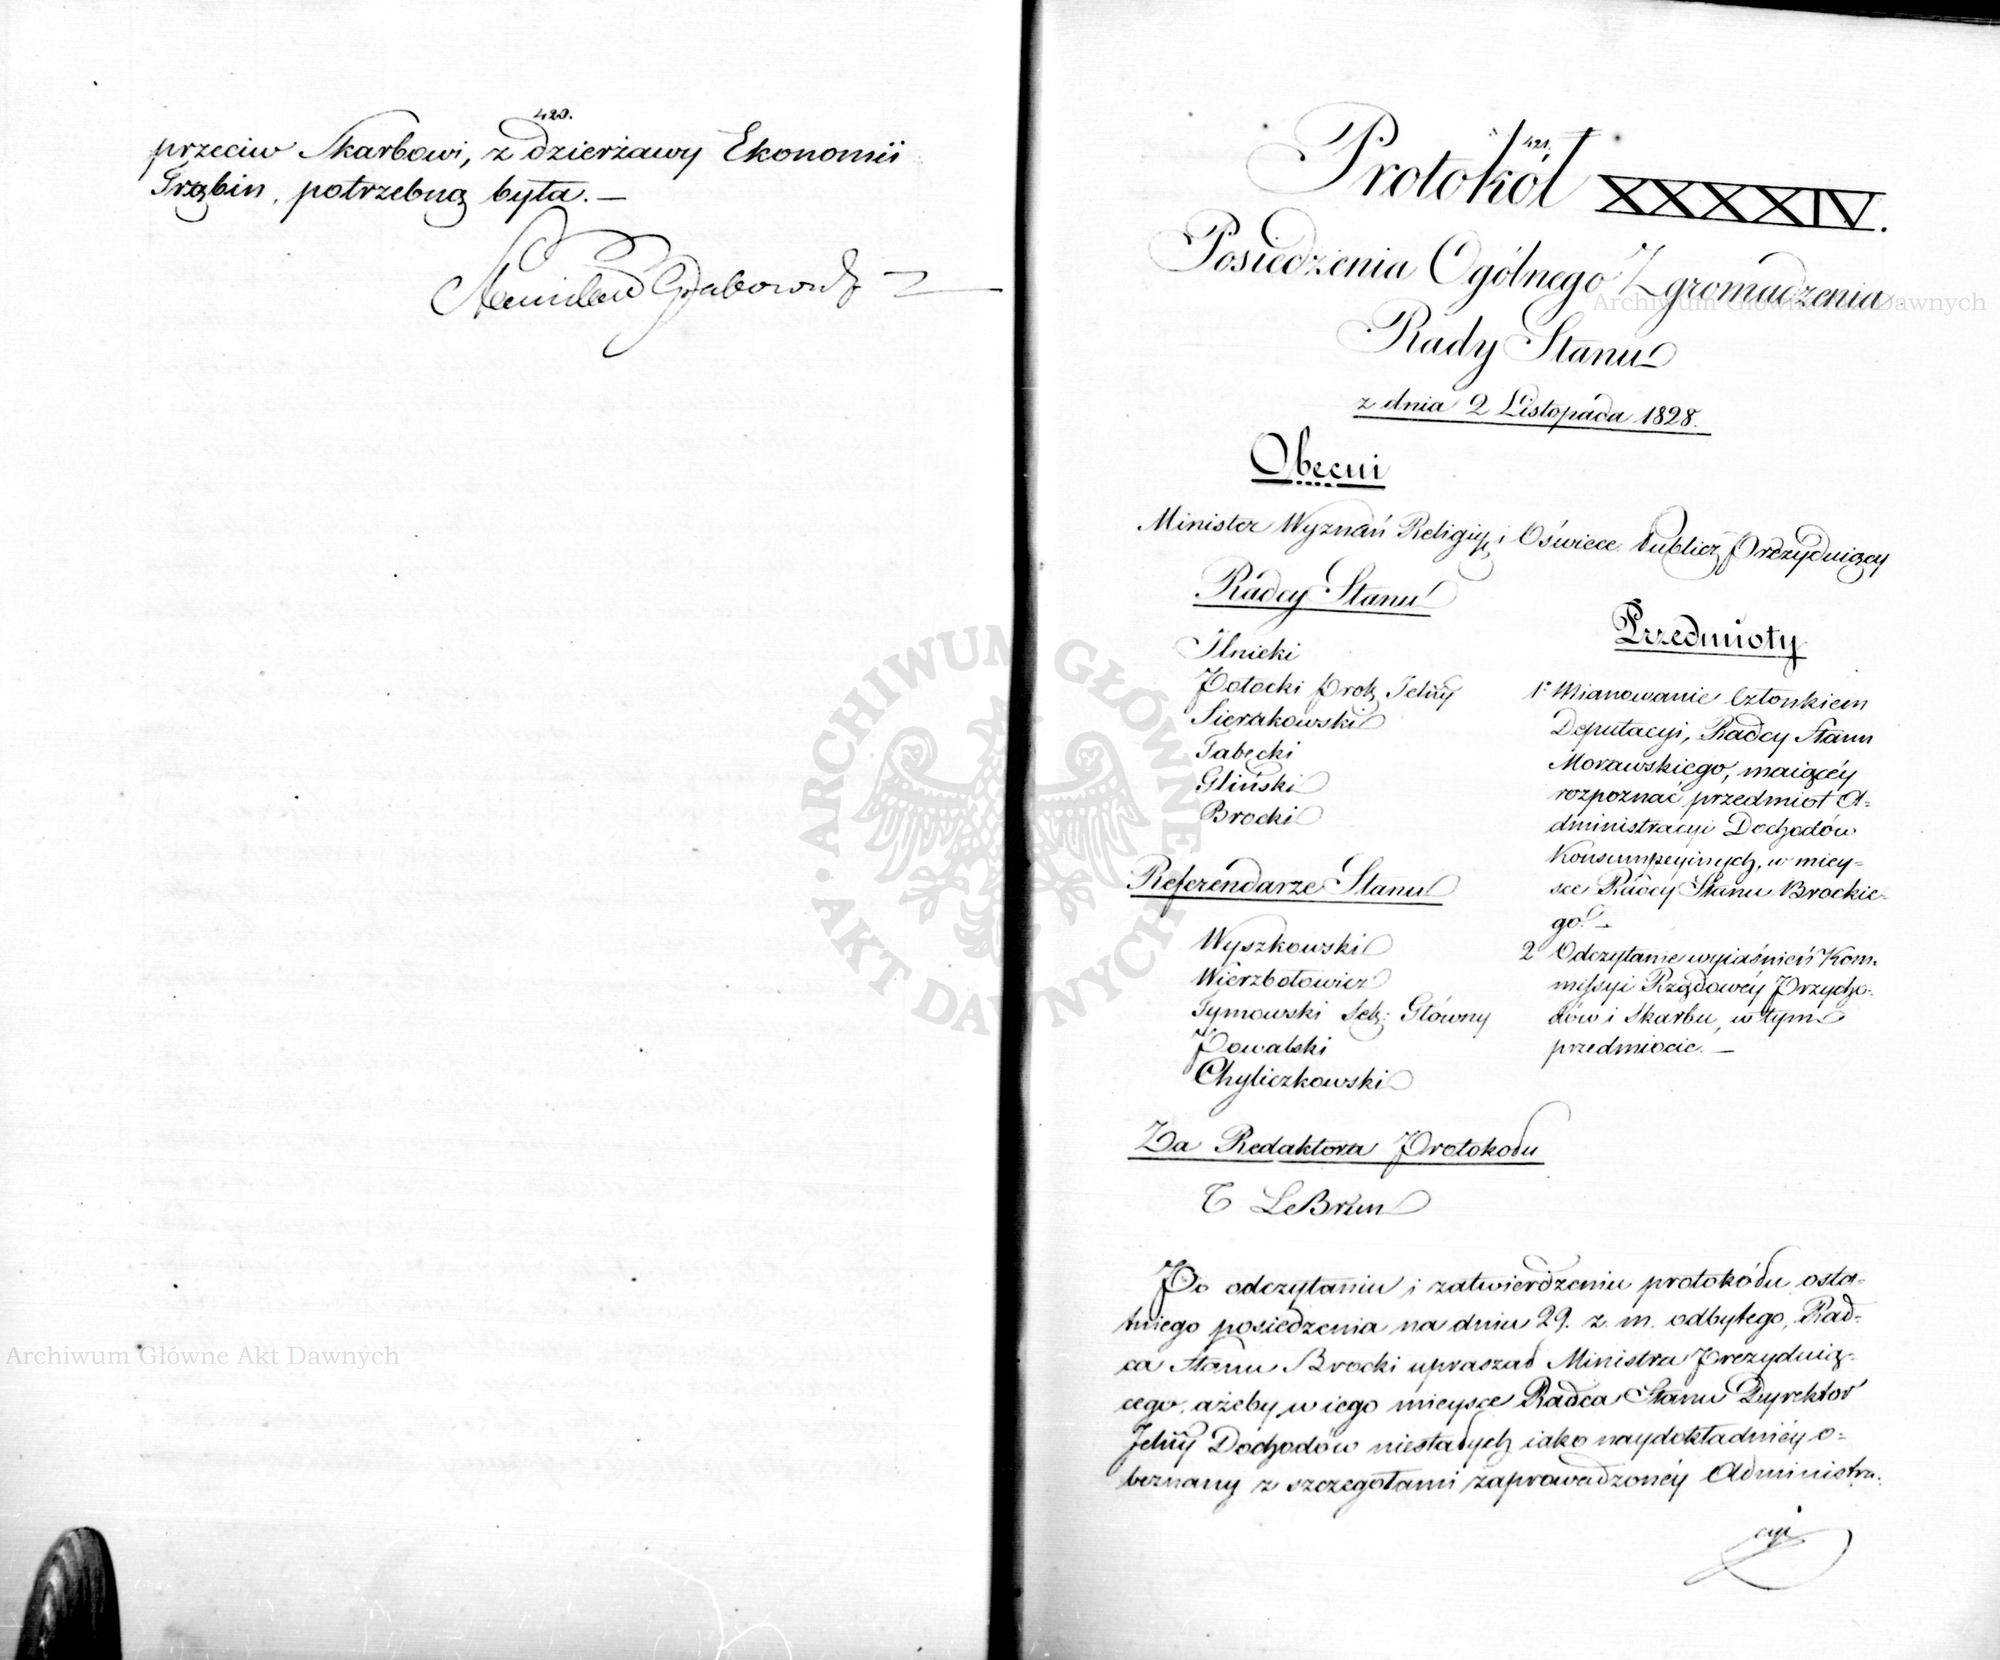 420.
przeciw Skarbowi, z dzierżawy Ekonomii
potrzebną była. —
Stanisław Grabowski
421.
Protokół XXXXIV.
Posiedzenia Ogólnego Zgromadzenia
Rady Stanu
z dnia 2 Listopada 1828.
Obecni
Minister Wyznań Religijn i Oświece. Publicz Prezyduiący
Radcy Stanu
Ilnicki
Potocki Prok Jelny
Sierakowski
Tabęcki
Gliński
Brocki
Referendarze Stanu
Wyszkowski
Wierzbołowicz
Tymowski Sek: Główny
Powalski
Chyliczkowski
Za Redaktora Protokołu
T LeBrun
Przedmioty
1° Mianowanie Członkiem
Deputacyi, Radcy Stanu
Morawskiego, maiącéy
rozpoznać przedmiot A-
dministracyi Dochodów
Konsumpcyinych, w miey-
sce Radcy Stanu Brockie-
go. —
2° Odczytanie wyiaśnień Kom-
missyi Rządowéy Przycho-
dów i Skarbu, w tym
przedmiocie. —
Po odczytaniu i zatwierdzeniu protokółu osta-
tniego posiedzenia na dniu 29. z. m. odbytego, Rad-
ca Stanu Brocki upraszał Ministra Prezyduią-
cego, ażeby w iego mieysce Radca Stanu Dyrektor
Jelny Dochodów niestałych iako naydokładniéy o-
beznany z szczegołami zaprowadzonéy Administra-
cyi
Archiwum Główne Akt Dawnych
Archiwum Główne Akt Dawnych
ARCHIWUM GŁÓWNE AKT DAWNYCH